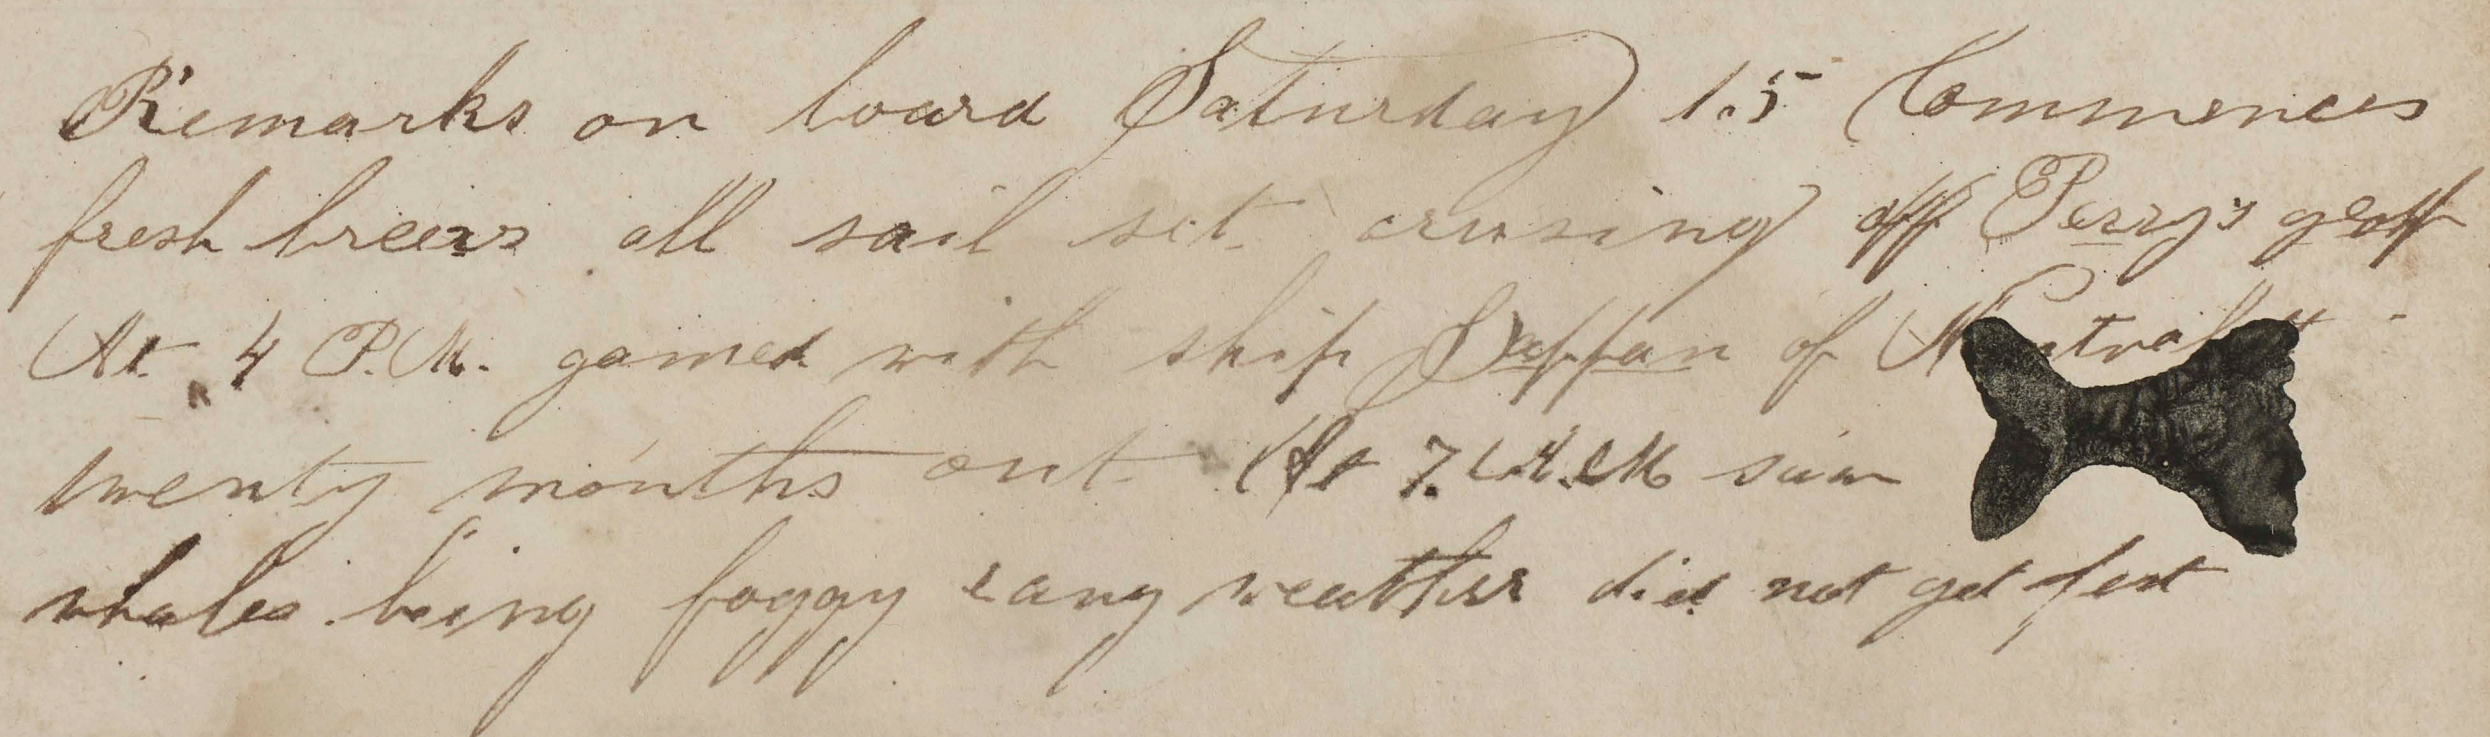 Remarks on board Saturday 15 Commences
fresh breezs all sail set crusing off Perry's groff
At 4 P.M. gamed with ship Jappan of
twenty months out At 7. A.M saw
whales being foggy rany weather did not get fast